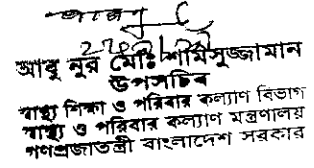 আবু নুর মোঃ শামসুজ্জামান
উপসচিব
স্বাস্থ্য শিক্ষা ও পরিবার কল্যাণ বিভাগ
স্বাস্থ্য ও পরিবার কল্যাণ মন্ত্রণালয়
গণপ্রজাতন্ত্রী বাংলাদেশ সরকার